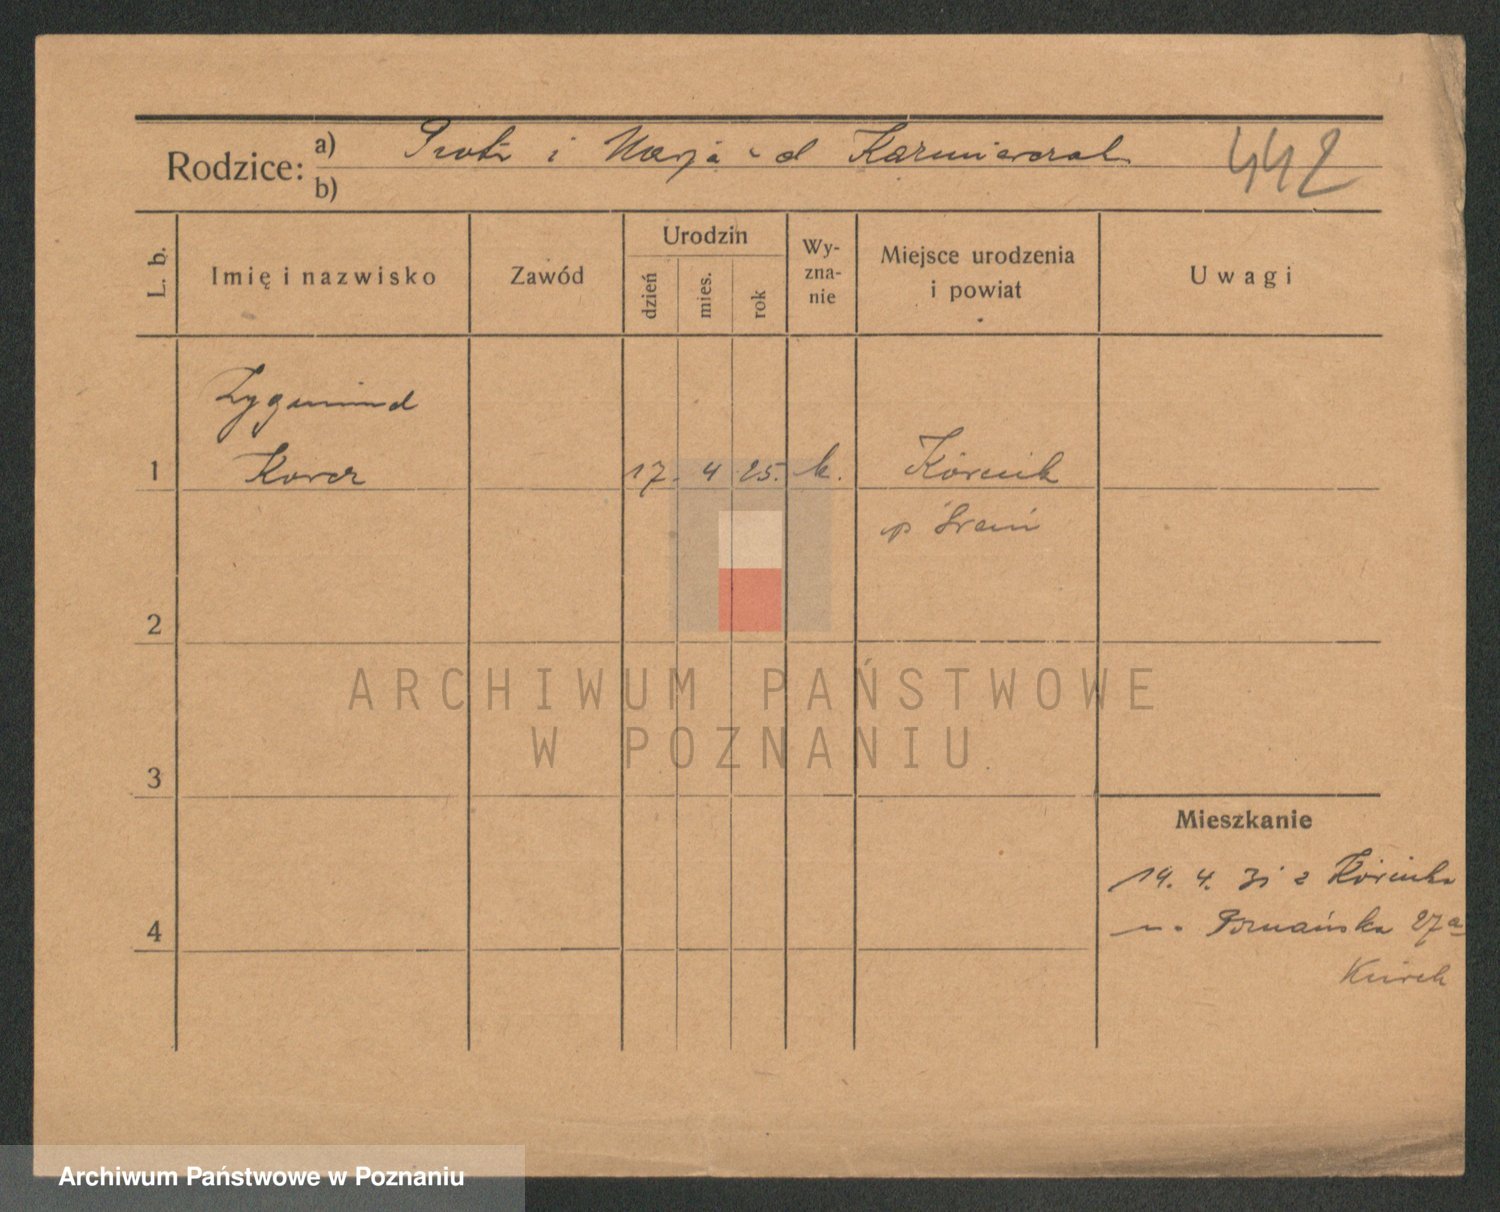 Rodzice: a) Piotr i Marja z d Kaźmierczak 442
b)
L. b. Imię i nazwisko Zawód Urodzin dzień mies. rok Wy-zna-nie Miejsce urodzenia i powiat Uwagi
Zygmund
1 Korcz 17. 4 25. k. Kórnik
p Śrem
2
ARCHIWUM PAŃSTWOWE
W POZNANIU
3
Mieszkanie
14. 4. 31 z Kórnika
4 Poznańska 27a
Archiwum Państwowe w Poznaniu